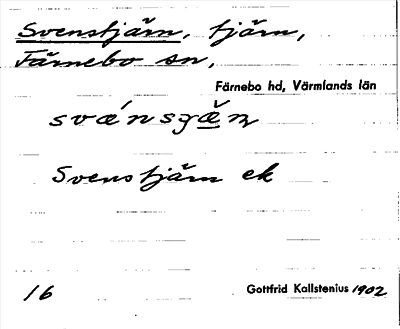 Svenstjärn, tjärn,
Färnebo sn,
Färnebo hd, Värmlands län
Svenstjärn ek
16 Gottfrid Kallstenius 1902